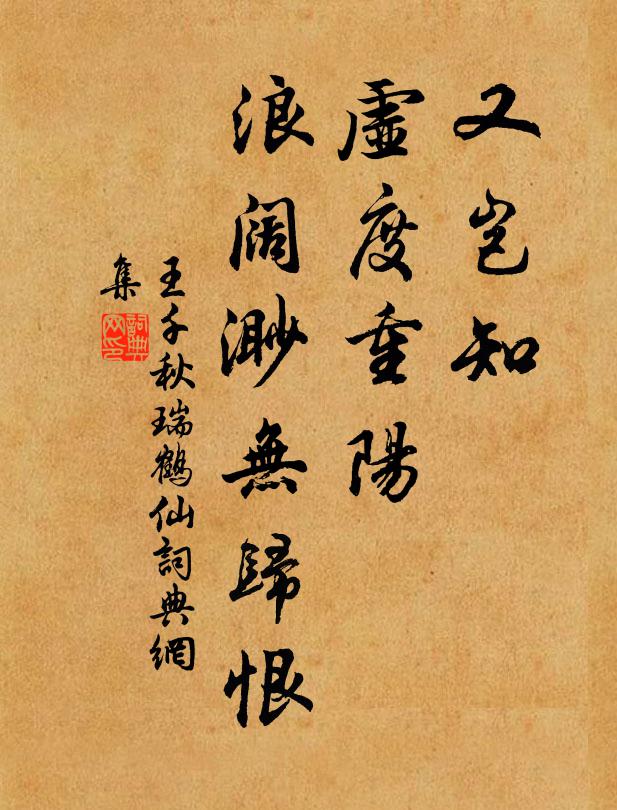 又岂知
虛度重陽
浪阔渺無歸恨
王千秋瑞鶴仙詞典網
集
詞典
网印